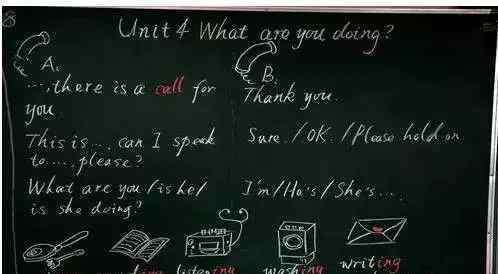 Unit 4 What are you doing?
A.
B.
...,there is a call for
you.
Thank you.
This is ... can I speak
to ..... please?
Sure. / OK. / Please hold on.
What are you / is he /
is she doing?
I'm / He's / She's ....
listening
washing
writing